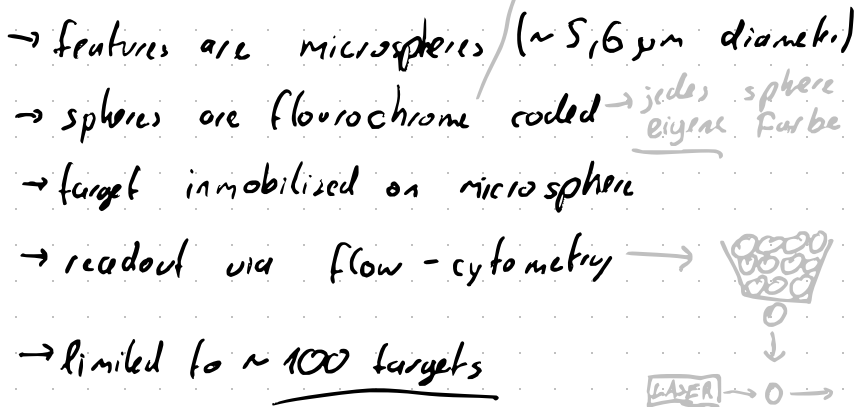 → features are microspheres (~ 5,6 µm diameter)
→ spheres are flourochrome coded → jedes sphere
eigene Farbe
→ target inmobilized on microsphere
→ readout via flow-cytometry →
→ limited to ~ 100 targets
LASER